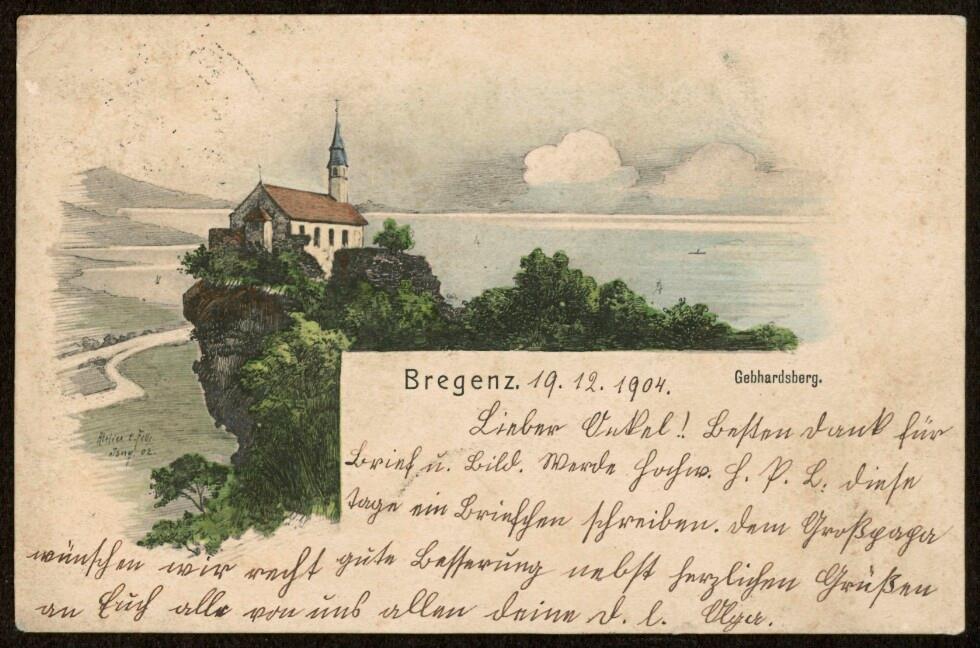 Bregenz. 19. 12. 1904.
Gebhardsberg.
Lieber Onkel! Besten Dank für
Brief u. Bild. Werde Hochw. H. P. L. diese
tage ein Briefchen schreiben. Dem Großpapa
wünschen wir recht gute Besserung nebst herzlichen Grüßen
an Euch alle von uns allen deine d. l. Olga.
02.